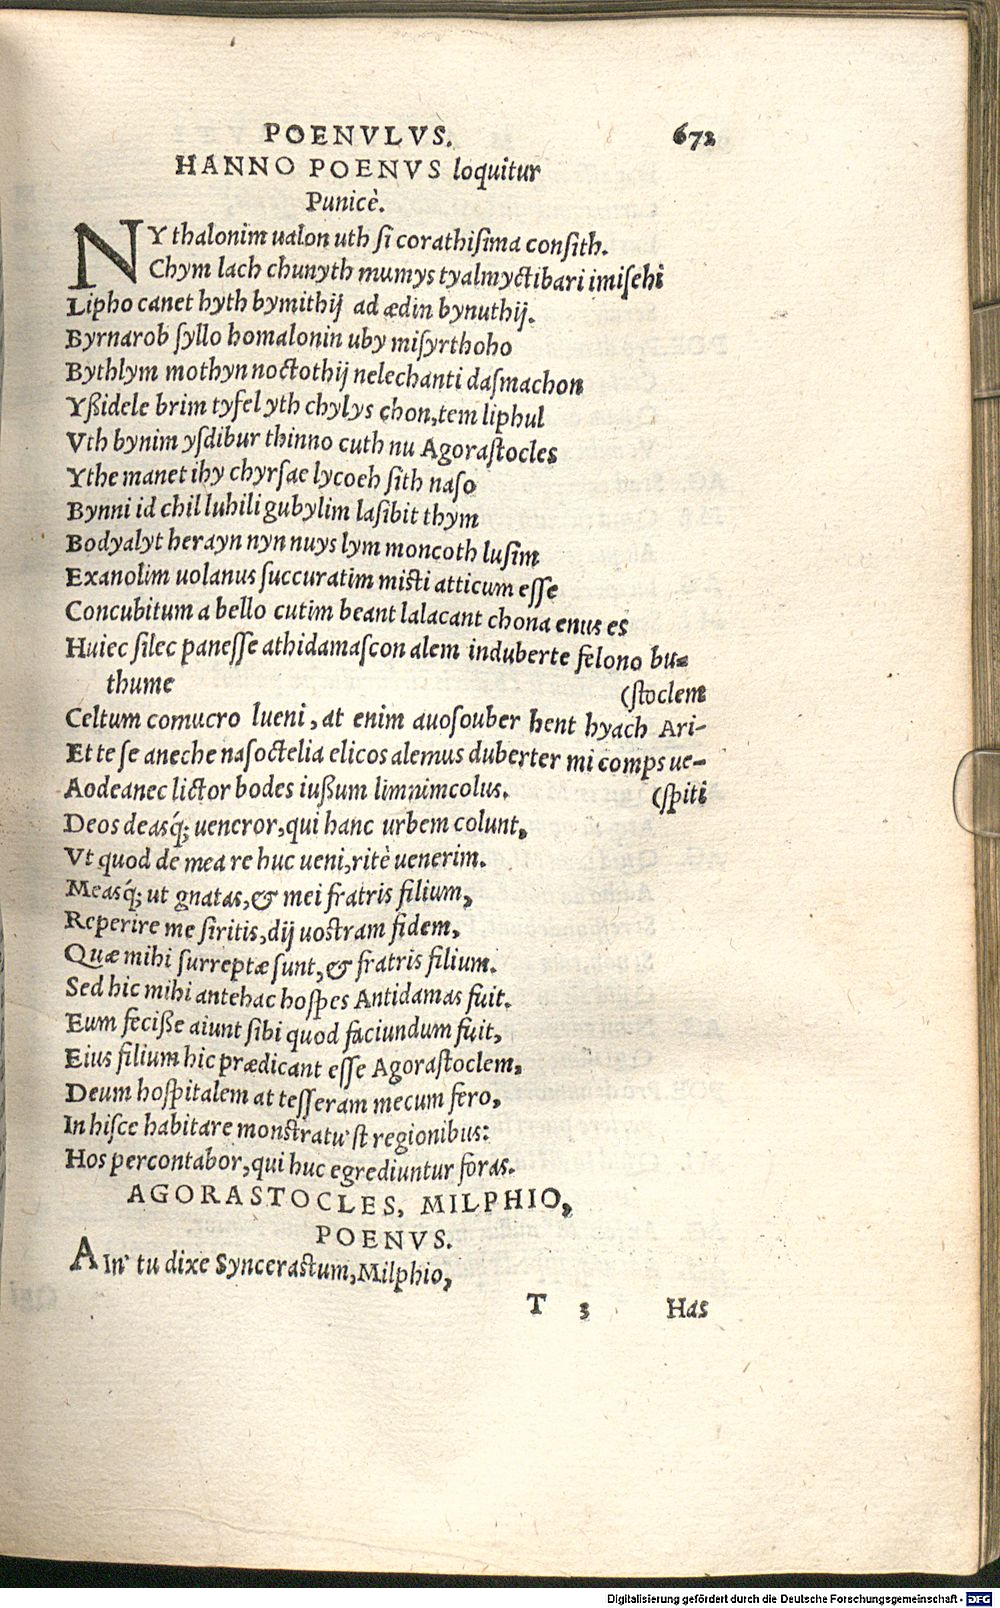 POENVLVS. 672
HANNO POENVS loquitur
Punicè.
NY thalonim ualon uth si corathisima consith.
Chym lach chunyth mumys tyalmyctibari imisehi
Lipho canet hyth bymithij ad ædin bynuthij.
Byrnarob syllo homalonin uby misyrthoho
Bythlym mothyn noctothij nelechanti dasmachon
Yßidele brim tyfel yth chylys chon, tem liphul
Vth bynim ysdibur thinno cuth nu Agorastocles
Ythe manet ihy chyrsae lycoeh sith naso
Bynni id chil luhili gubylim lasibit thym
Bodyalyt herayn nyn nuys lym moncoth lusim
Exanolim uolanus succuratim misti atticum esse
Concubitum a bello cutim beant lalacant chona enus es
Huiec silec panesse athidamascon alem induberte felono bu=
thume (stoclem
Celtum comucro lueni, at enim auosouber hent hyach Ari-
Et te se aneche nasoctelia elicos alemus duberter mi comps ue-
Aodeanec lictor bodes iußum limnimcolus. (spiti
Deos deasq́; ueneror, qui hanc urbem colunt,
Vt quod de mea re huc ueni, ritè uenerim.
Measq́; ut gnatas, & mei fratris filium,
Reperire me siritis, dij uostram fidem,
Quæ mihi surreptæ sunt, & fratris filium.
Sed hic mihi antehac hospes Antidamas fuit.
Eum feciße aiunt sibi quod faciundum fuit,
Eius filium hic prædicant esse Agorastoclem,
Deum hospitalem at tesseram mecum fero,
In hisce habitare monstratu'st regionibus:
Hos percontabor, qui huc egrediuntur foras.
AGORASTOCLES, MILPHIO,
POENVS.
AIn' tu dixe Syncerastum, Milphio,
T 3 Has
Digitalisierung gefördert durch die Deutsche Forschungsgemeinschaft - DFG